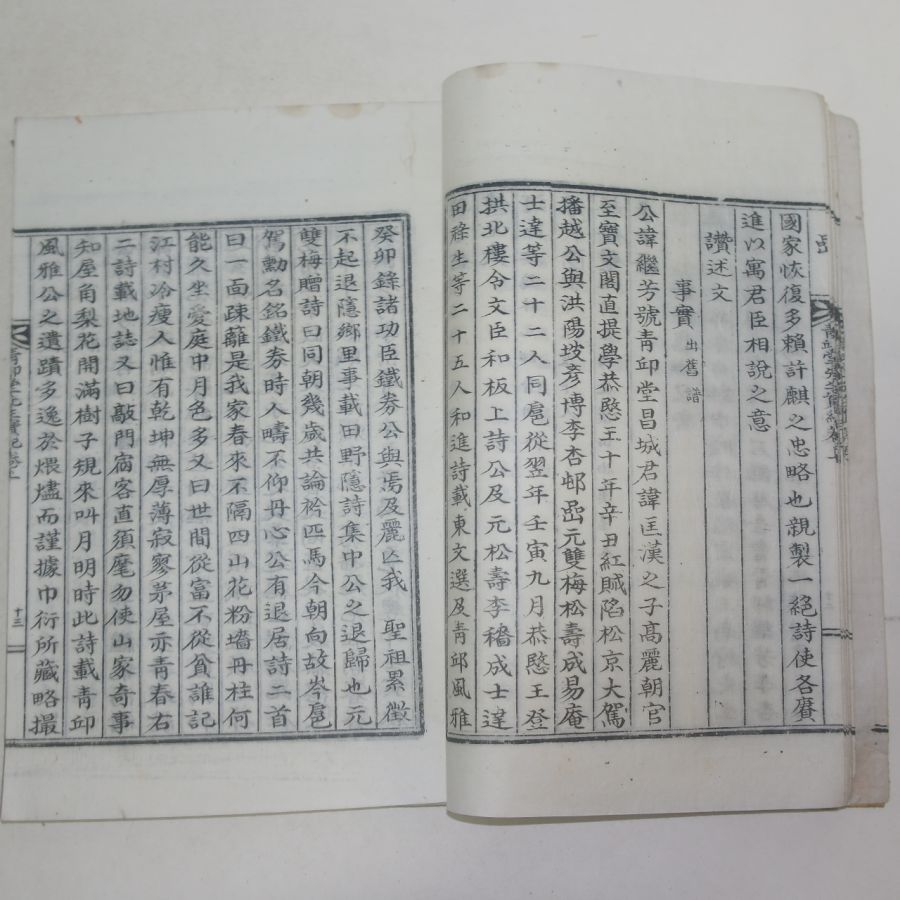 國家恢復多賴許麒之忠略也親製一絕詩使各賡
進以寓君臣相說之意
讚述文
事實 出舊譜
公諱繼芳號靑邱堂昌城君諱匡漢之子高麗朝官
至寶文閣直提學恭愍王十年辛丑紅賊陷松京大駕
播越公與洪陽坡彥博李杏邨嵒元雙梅松壽成易庵
士達等二十二人同扈從翌年壬寅九月恭愍王登
拱北樓令文臣和板上詩公及元松壽李穡成士達
田祿生等二十五人和進詩載東文選及靑邱風雅
癸卯錄諸功臣鐵券公與焉及麗亾我 聖祖累徵
不起退隱鄉里事載田野隱詩集中公之退歸也元
雙梅贈詩曰同朝幾歲共論衿匹馬今朝向故岑扈
駕勳名銘鐵券時人疇不仰丹心公有退居詩二首
曰一面疎籬是我家春來不隔四山花粉墻丹桂何
能久坐愛庭中月色多又曰世間從富不從貧誰記
江村冷瘦人惟有乾坤無厚薄寂寥茅屋亦靑春右
二詩載地誌又曰敲門宿客直須麾勿使山家奇事
知屋角梨花開滿樹子規來叫月明時此詩載靑邱
風雅公之遺蹟多逸於煨燼而謹據巾衍所藏略撮
十三